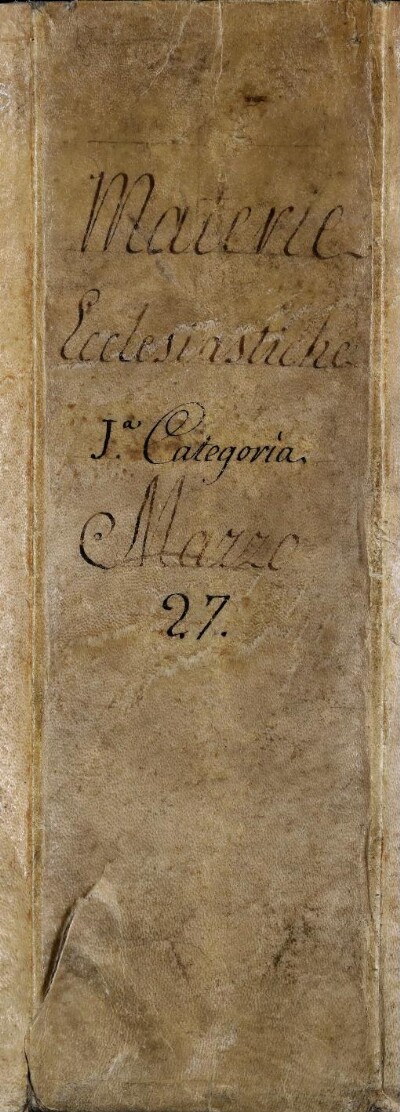 Materie
Ecclesiastiche
I.ª Categoria.
Mazzo
27.